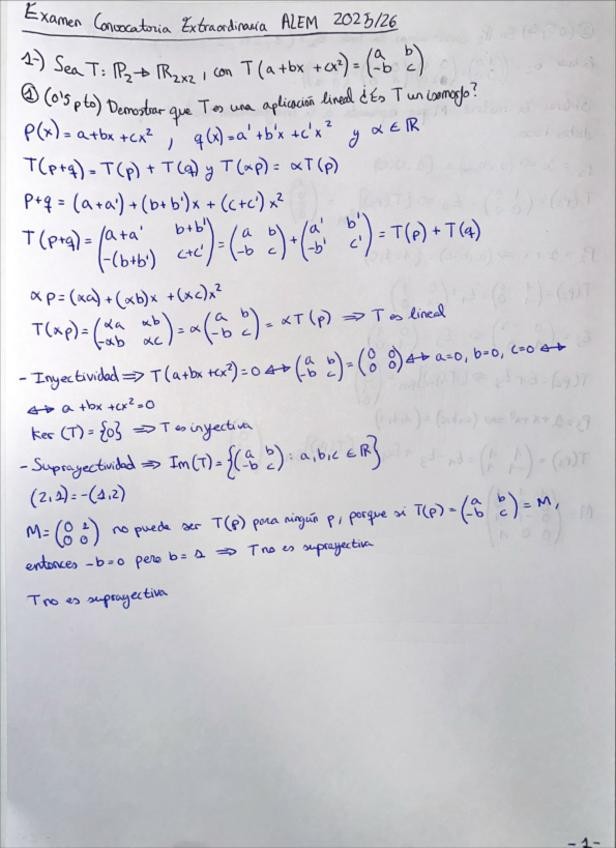 Examen Convocatoria Extraordinaria ALEM 2025/26
1-) Sea T: ℙ₂→ℝ₂ₓ₂, con T(a+bx+cx²) = (a b; -b c)
① (0'5 pto) Demostrar que T es una aplicación lineal ¿Es T un isomorfo?
p(x) = a+bx+cx² , q(x) = a'+b'x+c'x² y α∈ℝ
T(p+q) = T(p) + T(q) y T(αp) = αT(p)
p+q = (a+a') + (b+b')x + (c+c')x²
T(p+q) = (a+a' b+b'; -(b+b') c+c') = (a b; -b c) + (a' b'; -b' c') = T(p) + T(q)
αp = (αa) + (αb)x + (αc)x²
T(αp) = (αa αb; -αb αc) = α(a b; -b c) = αT(p) ⇒ T es lineal
- Inyectividad ⇒ T(a+bx+cx²) = 0 ⇔ (a b; -b c) = (0 0; 0 0) ⇔ a=0, b=0, c=0 ⇔
⇔ a+bx+cx²=0
Ker (T) = {0} ⇒ T es inyectiva
- Suprayectividad ⇒ Im(T) = {(a b; -b c) : a,b,c ∈ ℝ}
(2,1) = -(1,2)
M = (0 1; 0 0) no puede ser T(p) para ningún p, porque si T(p) = (a b; -b c) = M,
entonces -b=0 pero b=1 ⇒ T no es suprayectiva
T no es suprayectiva
-1-